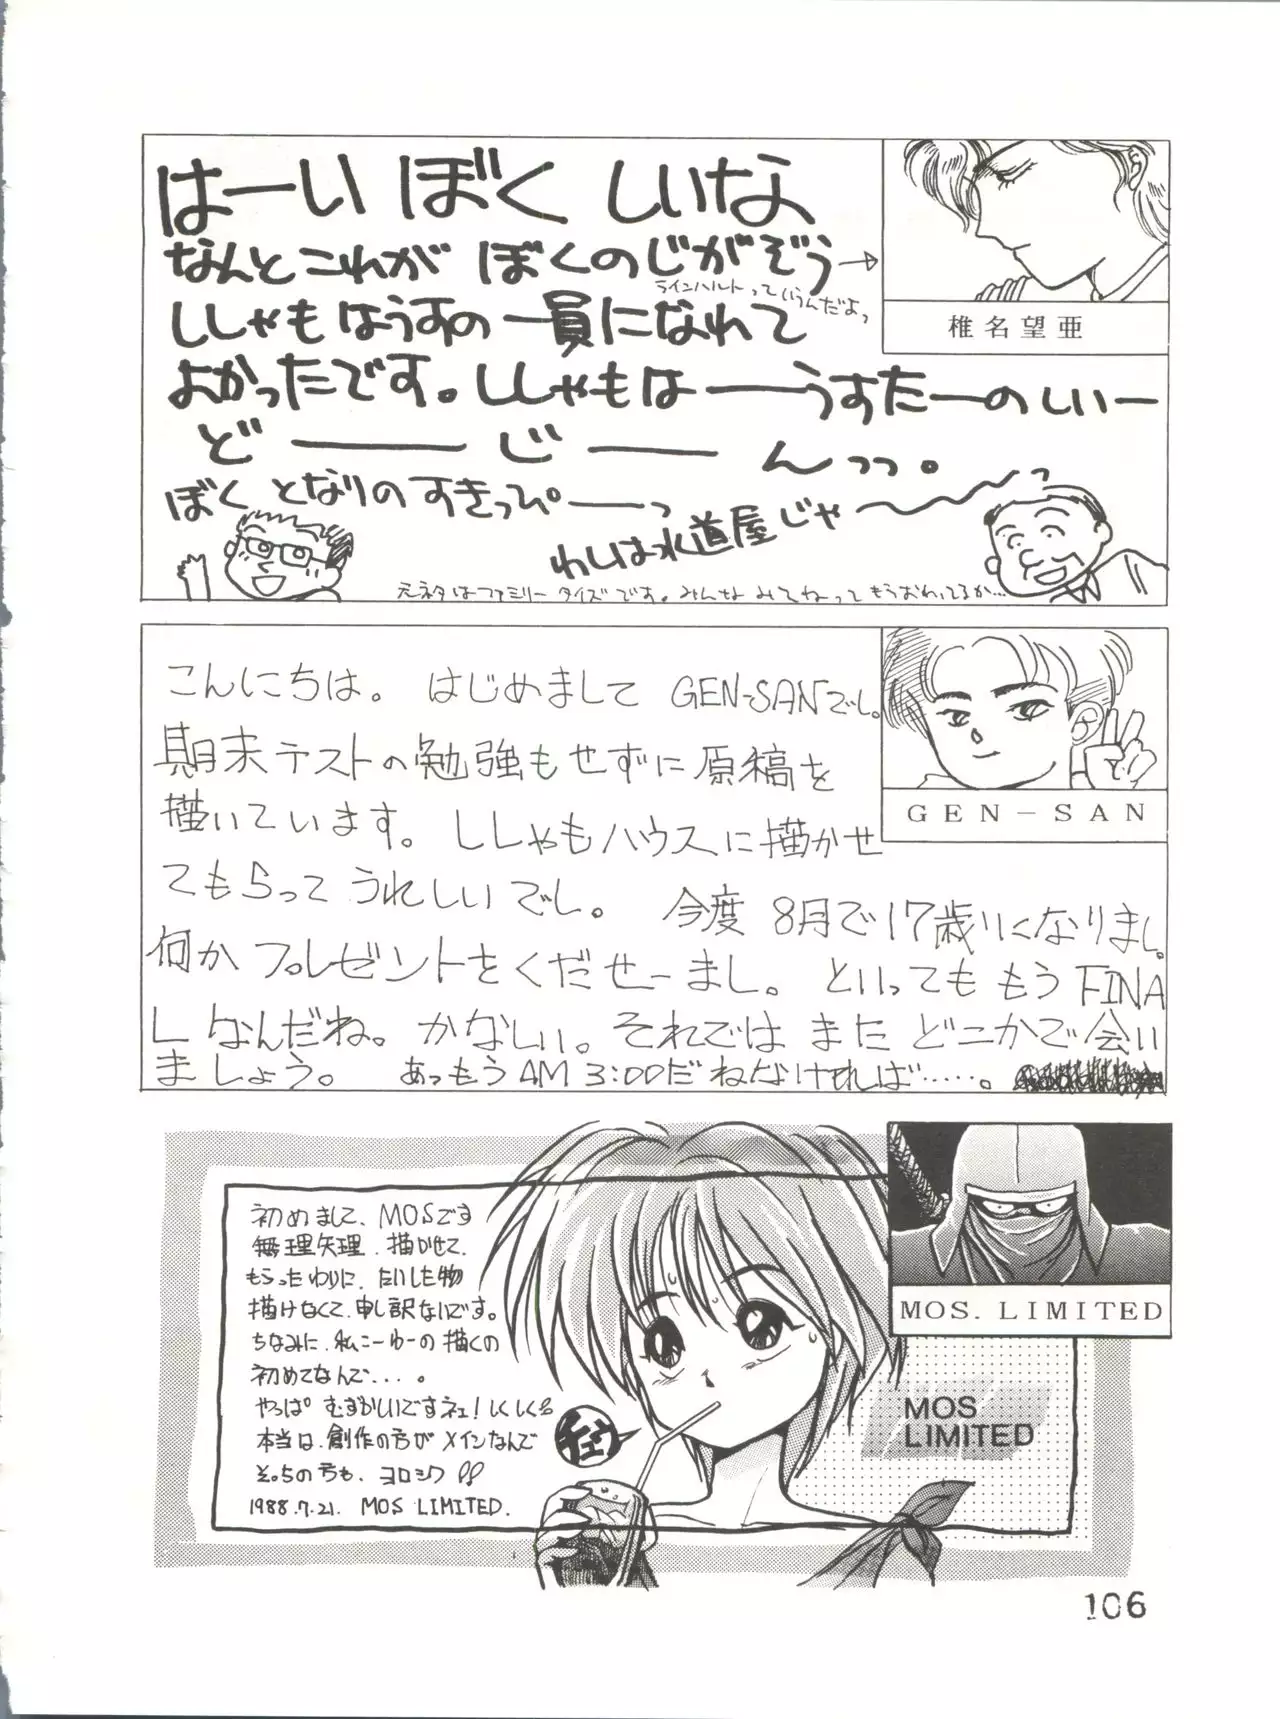 はーい ぼく しいな
なんとこれが ぼくのじがぞう→
ラインハルトって いうんだよっ
ししゃもはうすの 一員になれて
よかったです。ししゃもは──うすたーのしいー
ど── じ── んっっ。
ぼく となりのすきっぴ──っ
わしは水道屋じゃ〜〜っ
元ネタはファミリータイズです。みんな みてねって もうおわってるか…
椎名望亜
こんにちは。 はじめまして GEN-SANでし。
期末テストの勉強もせずに原稿を
描いています。ししゃもハウスに描かせ
てもらって うれしいでし。 今度 8月で17歳になりまし。
何か プレゼントをくだせーまし。 といっても もう FINA
L なんだね。かなしい。それでは また どこかで会い
ましょう。 あっもう AM 3:00だ ねなければ……。
GEN-SAN
初めまして、MOSです
無理矢理、描かせて、
もらったわりに、たいした物
描けなくて、申し訳ないです。
ちなみに、私こーゆーの描くの
初めてなんで‥‥。
やっぱ むずかしいですネェ! しくしく
本当は、創作の方がメインなんで
そっちの方も、ヨロシク!!
1988.7.21. MOS LIMITED.
チュウ
MOS
LIMITED
MOS. LIMITED
106